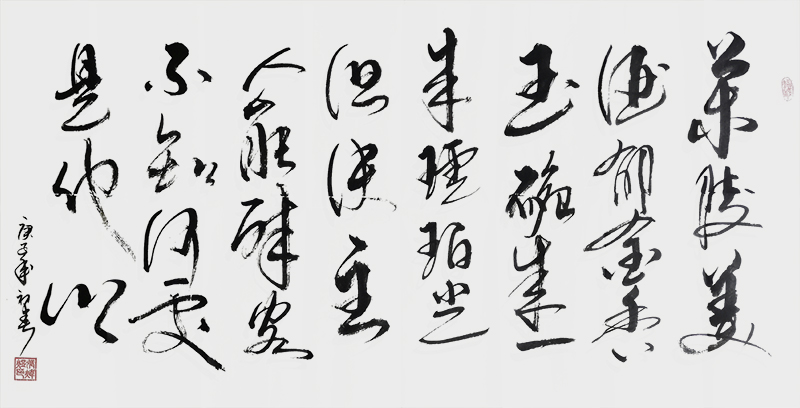 蘭陵美
酒郁金香
玉碗盛
来琥珀光
但使主
人能醉客
不知何處
是他鄉
庚子